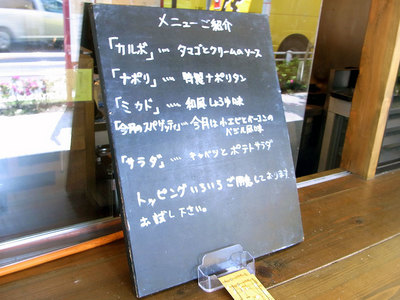 メニューご紹介
「カルボ」…. タマゴとクリームのソース
「ナポリ」…. 特製ナポリタン
「ミカド」…. 和風しょうゆ味
「今月のスパゲッティ」… 今月は小エビとベーコンの
バジル風味
「サラダ」…. キャベツとポテトサラダ
トッピングいろいろご用意しております
お試し下さい。